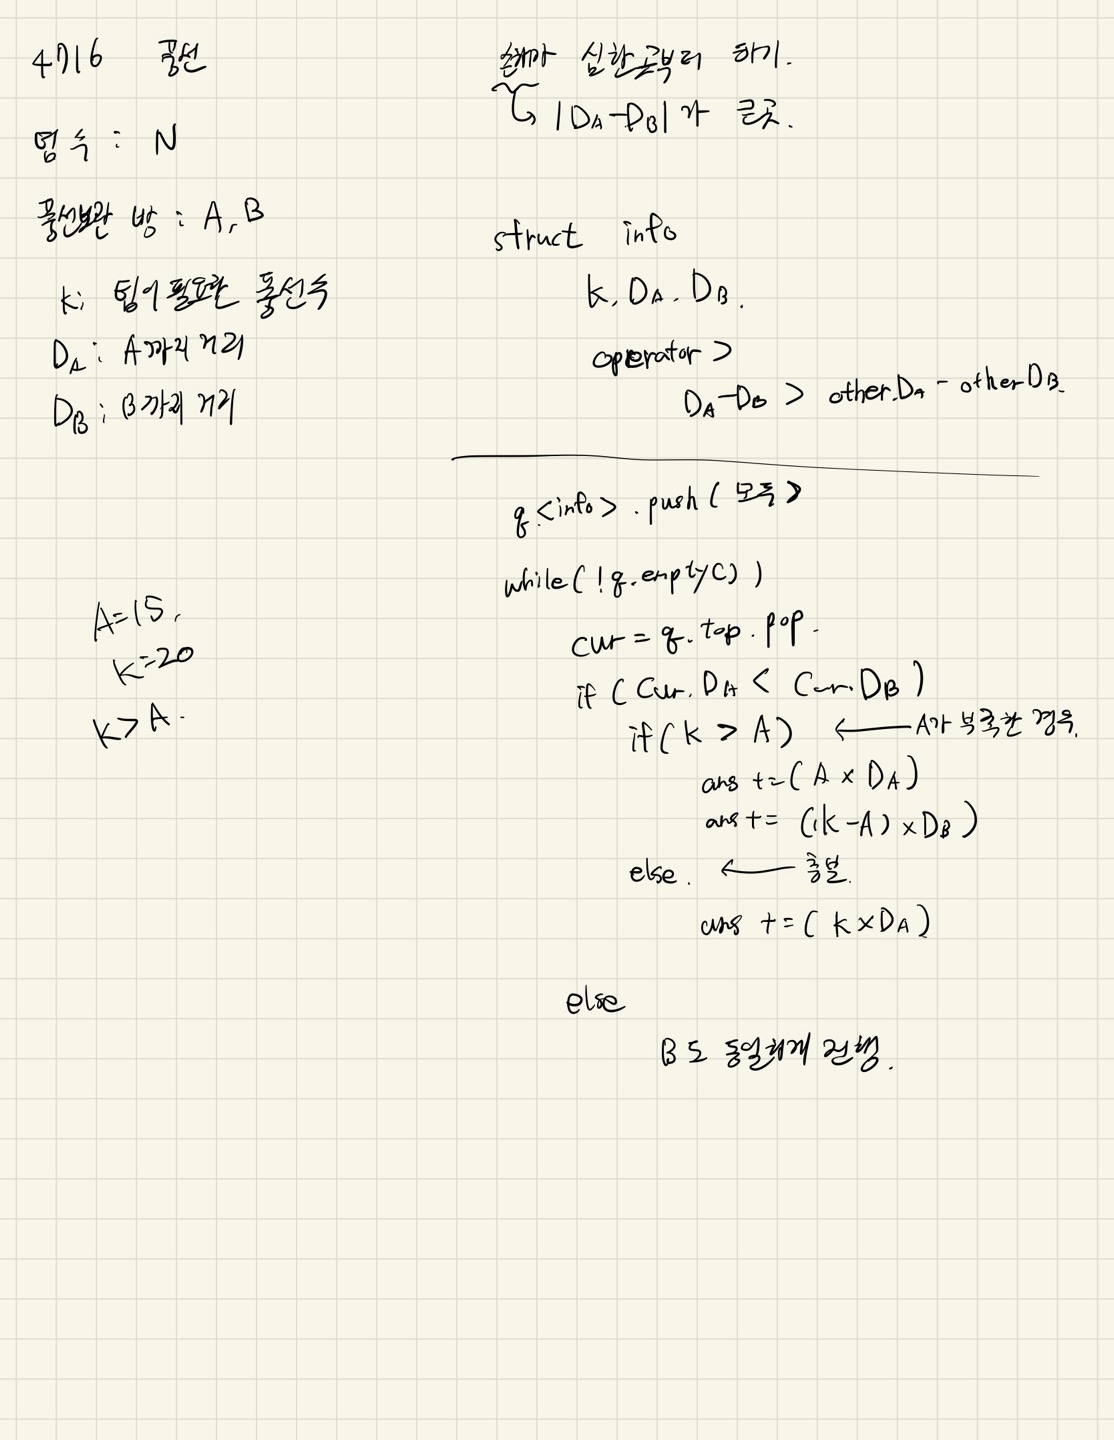 4716 풍선
팀 수 : N
풍선보관 방 : A, B
k; 팀이 필요한 풍선수
DA : A까지 거리
DB ; B까지 거리
A=15,
k=20
k>A.
손해가 심한곳부터 하기.
|DA-DB|가 큰곳.
struct info
k, DA, DB.
operator >
DA-DB > other.DA - other DB.
q<info>.push(모두)
while(!q.empty())
cur = q.top.pop.
if (Cur.DA < Cur.DB)
if(k > A) ← A가 부족한 경우.
ans +=(A × DA)
ans += ((k-A) × DB)
else. ← 충분.
ans +=(k×DA)
else
B도 동일하게 진행.